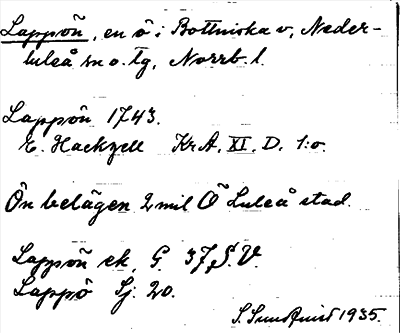 Lappön, en ö i Bottniska v, Neder-
luleå sn o. tg, Norrb. l.
Lappön 1743.
E. Hackzell KrA, XI. D. 1:o.
Ön belägen 2 mil Ö Luleå stad.
Lappön ek. G. 37, S.V.
Lappö Sj: 20.
S. Sundqvist 1935.